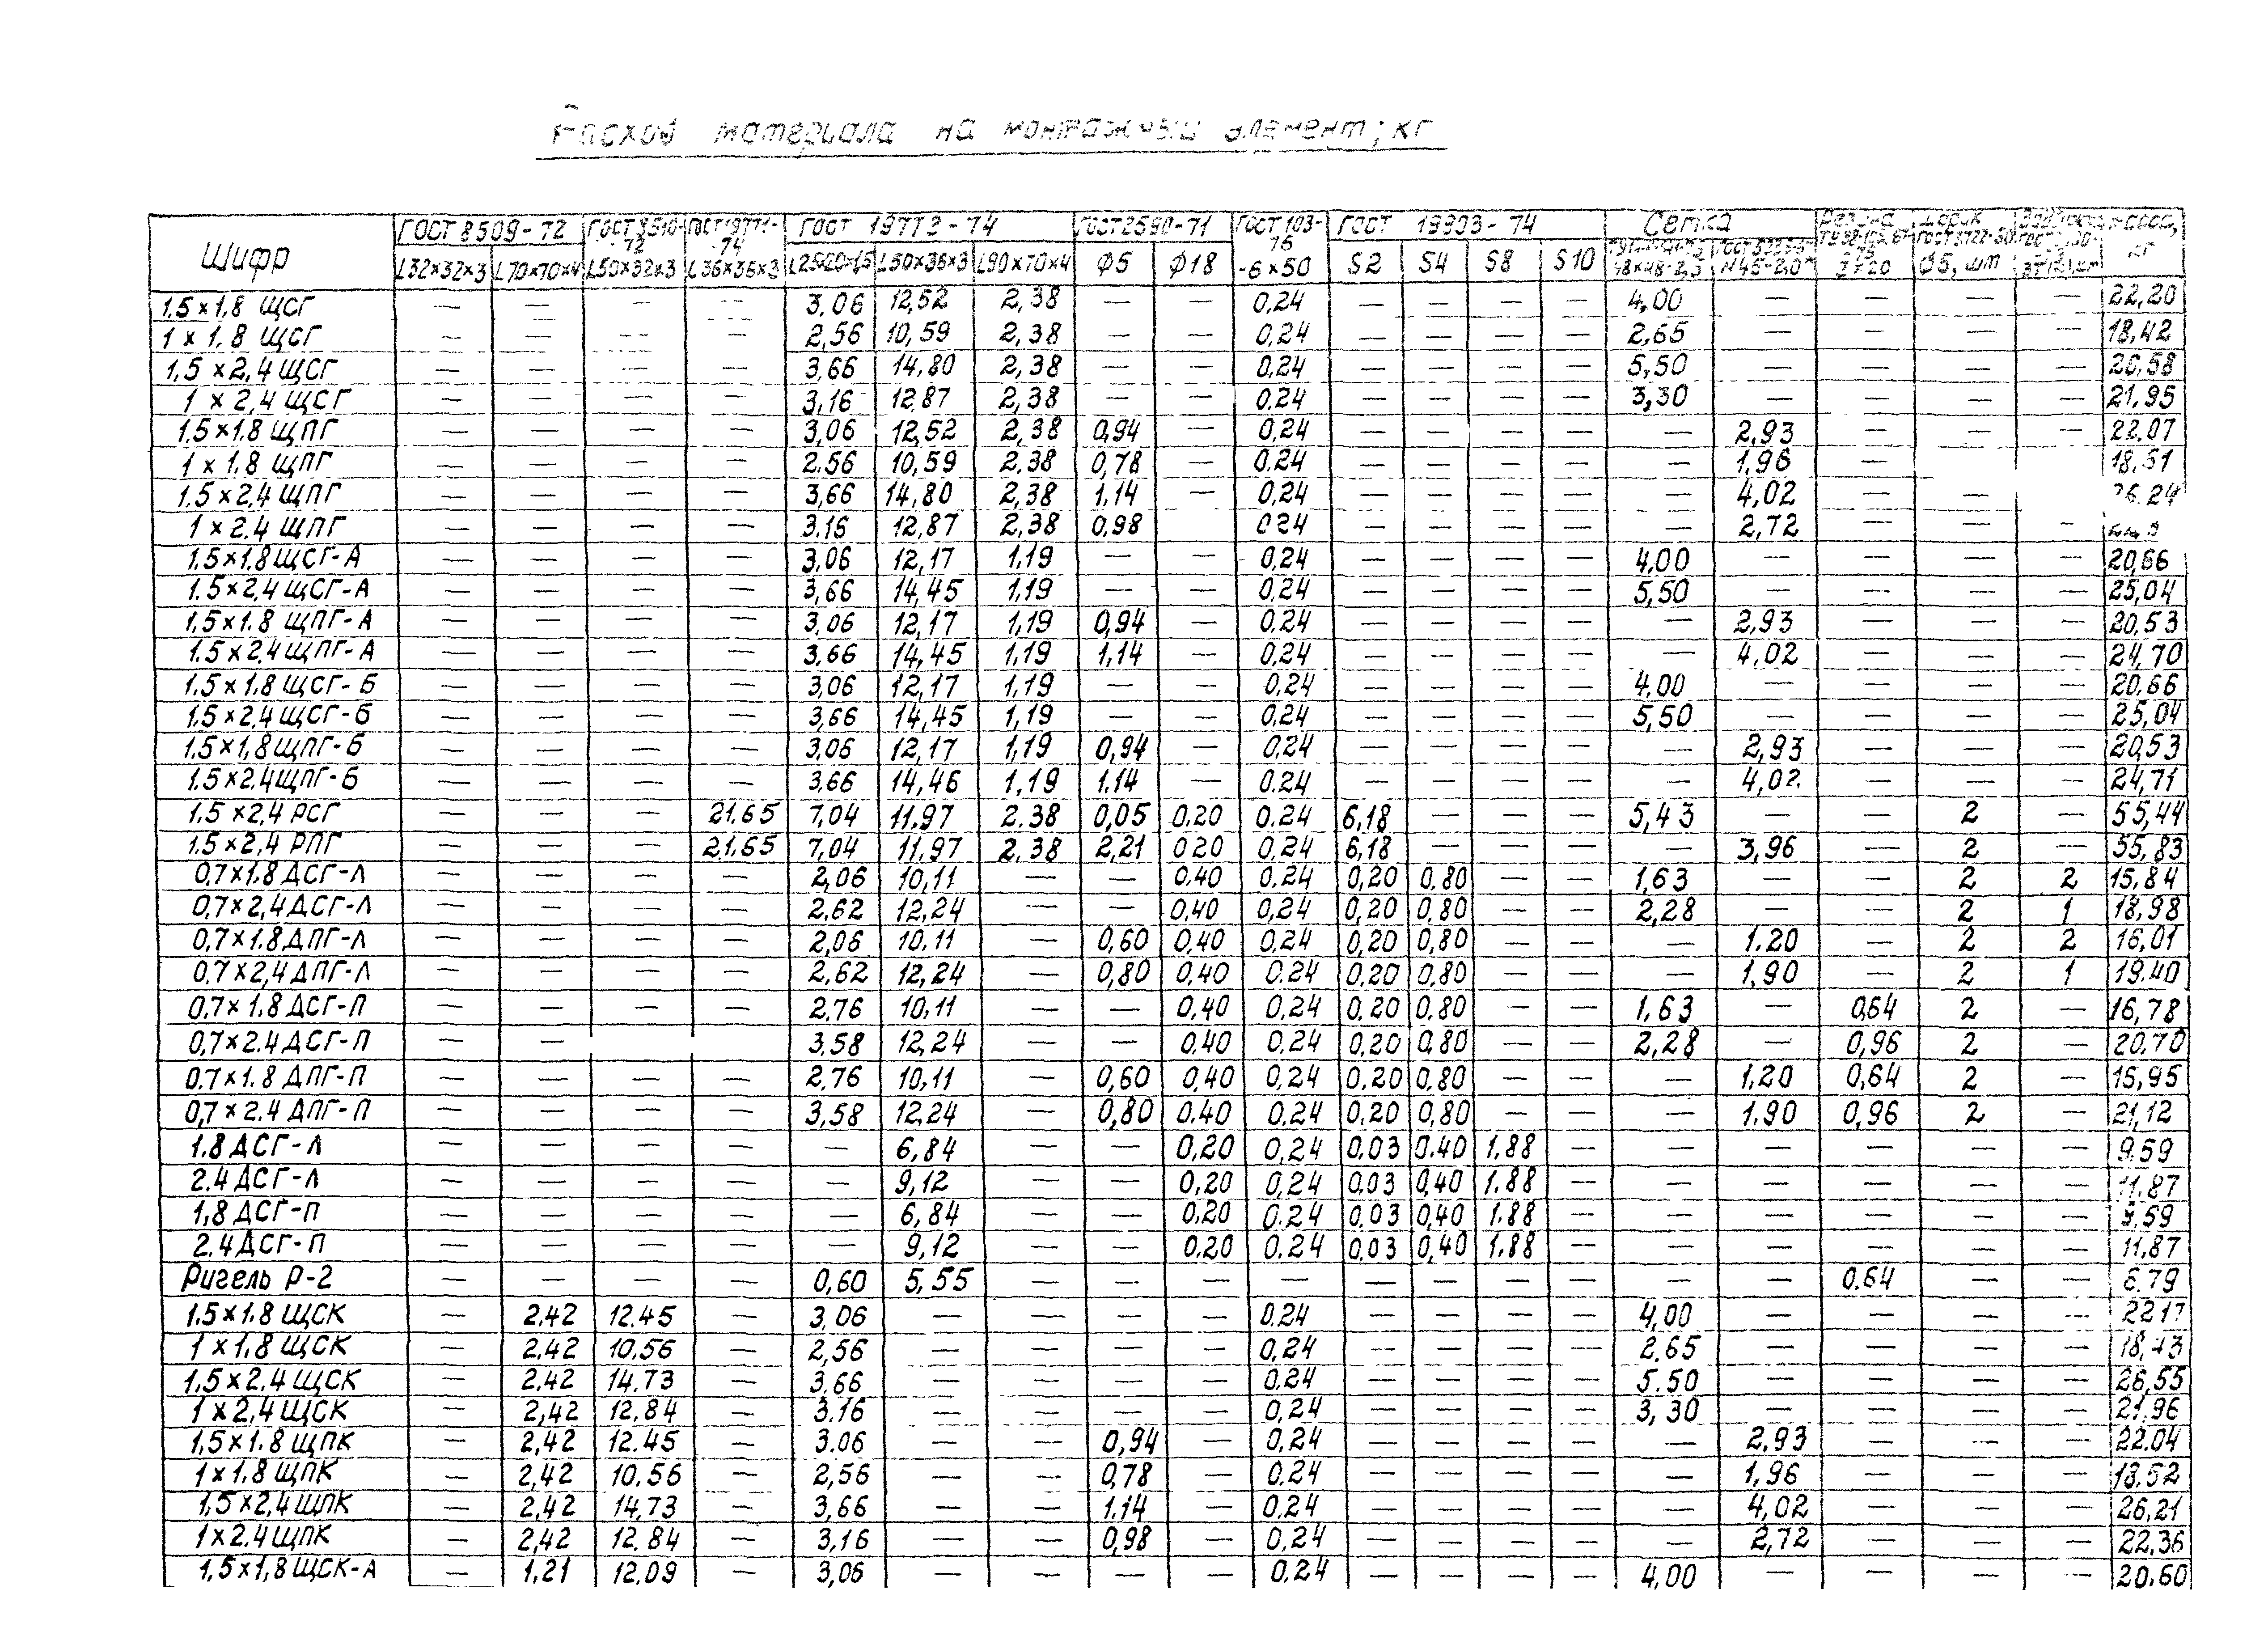 Расход материала на монтажный элемент; кг
Шифр ГОСТ 8509-72 ГОСТ 8510-72 ГОСТ 19771-74 ГОСТ 19772-74 ГОСТ 2590-71 ГОСТ 103-76 ГОСТ 19903-74 Сетка Резина Шарик масса, кг
L32×32×3 L70×70×4 L50×32×3 L36×36×3 L50×36×3 L90×70×4 Ф5 Ф18 -6×50 S2 S4 S8 S10 Ф5, шт
1.5×1,8 ЩСГ — — — — 3,06 12,52 2,38 — — 0,24 — — — — 4,00 — — — — 22,20
1×1,8 ЩСГ — — — — 2,56 10,59 2,38 — — 0,24 — — — — 2,65 — — — — 18,42
1,5×2,4 ЩСГ — — — — 3,66 14,80 2,38 — — 0,24 — — — — 5,50 — — — — 26,58
1×2,4 ЩСГ — — — — 3,16 12,87 2,38 — — 0.24 — — — — 3,30 — — — — 21,95
1,5×1,8 ЩПГ — — — — 3,06 12,52 2,38 0,94 — 0,24 — — — — — 2,93 — — — 22,07
1×1,8 ЩПГ — — — — 2.56 10,59 2,38 0,78 — 0.24 — — — — — 1,96 — — — 18,51
1.5×2,4 ЩПГ — — — — 3,66 14,80 2,38 1,14 — 0,24 — — — — — 4,02 — — — 26.24
1×2.4 ЩПГ — — — — 3.16 12,87 2,38 0,98 024 — — — — — 2,72 — — -
1.5×1,8 ЩСГ-А — — — — 3,06 12,17 1,19 — — 0,24 — — — — 4,00 — — — — 20,66
1.5×2,4 ЩСГ-А — — — — 3,66 14,45 1,19 — — 0.24 — — — — 5,50 — — — — 25,04
1,5×1.8 ЩПГ-А — — — — 3,06 12,17 1,19 0,94 — 0.24 — — — — — 2,93 — — — 20,53
1.5×2,4 ЩПГ-А — — — — 3,66 14,45 1,19 1,14 — 0,24 — — — — — 4,02 — — — 24,70
1,5×1,8 ЩСГ-Б — — — — 3,06 12,17 1,19 — — 0,24 — — — — 4,00 — — — — 20,66
1.5×2,4 ЩСГ-Б — — — — 3,66 14,45 1,19 — — 0.24 — — — — 5,50 — — — — 25,04
1.5×1,8 ЩПГ-Б — — — — 3,06 12,17 1,19 0,94 — 0,24 — — — — — 2,93 — — — 20,53
1.5×2.4 ЩПГ-Б — — — — 3,66 14,46 1,19 1.14 — 0.24 — — — — — 4,02. — — — 24,71
1.5×2,4 РСГ — — — 21.65 7,04 11,97 2.38 0,05 0.20 0.24 6,18 — — — 5,43 — — 2 — 55,44
1.5×2,4 РПГ — — — 21.65 7,04 11,97 2.38 2,21 020 0,24 6,18 — — — — 3,96 — 2 — 55,83
0,7×1.8 ДСГ-Л — — — — 2,06 10,11 — — 0.40 0.24 0,20 0.80 — — 1,63 — — 2 2 15,84
0,7×2,4 ДСГ-Л — — — — 2,62 12,24 — — 0,40 0,24 0,20 0,80 — — 2,28 — — 2 1 18,98
0,7×1.8 ДПГ-Л — — — — 2,06 10.11 — 0,60 0,40 0.24 0,20 0,80 — — — 1.20 — 2 2 16,01
0.7×2,4 ДПГ-Л — — — — 2,62 12,24 — 0,80 0,40 0.24 0,20 0,80 — — — 1,90 — 2 1 19.40
0.7×1.8 ДСГ-П — — — — 2,76 10,11 — — 0,40 0,24 0.20 0,80 — — 1,63 — 0,64 2 — 16,78
0,7×2.4 ДСГ-П — — 3.58 12,24 — — 0.40 0.24 0.20 0,80 — — 2,28 — 0,96 2 — 20.70
0.7×1.8 ДПГ-П — — — — 2,76 10,11 — 0,60 0,40 0,24 0.20 0,80 — — — 1,20 0,64 2 — 15,95
0,7×2.4 ДПГ-П — — — — 3,58 12,24 — 0,80 0.40 0.24 0.20 0,80 — — — 1.90 0,96 2 — 21,12
1.8 ДСГ-Л — — — — — 6,84 — — 0,20 0,24 0.03 0.40 1.88 — — — — — — 9.59
2.4 ДСГ-Л — — — — — 9,12 — — 0,20 0,24 0,03 0,40 1.88 — — — — — — 11.87
1,8 ДСГ-П — — — — — 6,84 — — 0.20 0.24 0,03 0,40 1.88 — — — — — — 9.59
2.4 ДСГ-П — — — — — 9,12 — — 0.20 0.24 0,03 0,40 1.88 — — — — — — 11,87
Ригель Р-2 — — — — 0,60 5,55 — — — — — — — — — — 0.64 — — 6.79
1.5×1.8 ЩСК — 2,42 12.45 — 3,06 — — — — 0.24 — — — — 4,00 — — — —
1×1,8 ЩСК — 2.42 10,56 — 2,56 — — — — 0,24 — — — — 2.65 — — — — 18,43
1,5×2.4 ЩСК — 2.42 14.73 — 3,66 — — — — 0.24 — — — — 5.50 — — — — 26,55
1×2,4 ЩСК — 2,42 12.84 — 3.16 — — — — 0,24 — — — — 3,30 — — — — 21,96
1,5×1.8 ЩПК — 2,42 12.45 — 3.06 — — 0,94 — 0.24 — — — — — 2.93 — — — 22.04
1×1.8 ЩПК — 2,42 10.56 — 2,56 — — 0,78 — 0.24 — — — — — 1,96 — — — 18.52
1,5×2,4 ЩПК — 2,42 14,73 — 3,66 — — 1.14 — 0.24 — — — — — 4,02 — — — 26,21
1×2.4 ЩПК — 2,42 12.84 — 3,16 — — 0,98 — 0,24 — — — — — 2,72 — — — 22,36
1,5×1,8 ЩСК-А — 1.21 12.09 — 3,06 — — — — 0.24 — — — — 4,00 — — — — 20.60